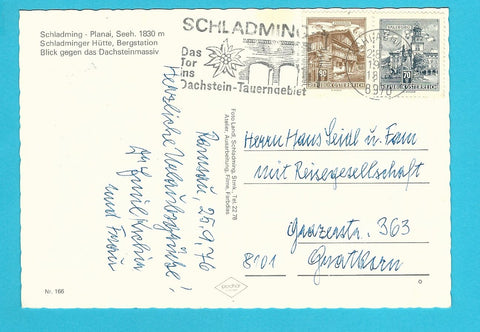 Schladming - Planai, Seeh. 1830 m
Schladminger Hütte, Bergstation
Blick gegen das Dachsteinmassiv
SCHLADMING
Das
Tor
ins
Dachstein-Tauerngebiet
REPUBLIK ÖSTERREICH
70
REPUBLIK ÖSTERREICH
25
8970
Ramsau 25.9.76
Herzliche Urlaubsgrüße!
und Frau
Foto Landl, Schladming, Stmk., Tel. 22 78
Atelier, Ausarbeitung, Filme, Farbdias
Herrn Hans Seidl u. Fam
mit Reisegesellschaft
Grazerstr. 363
8101 Gratkorn
Nr. 166